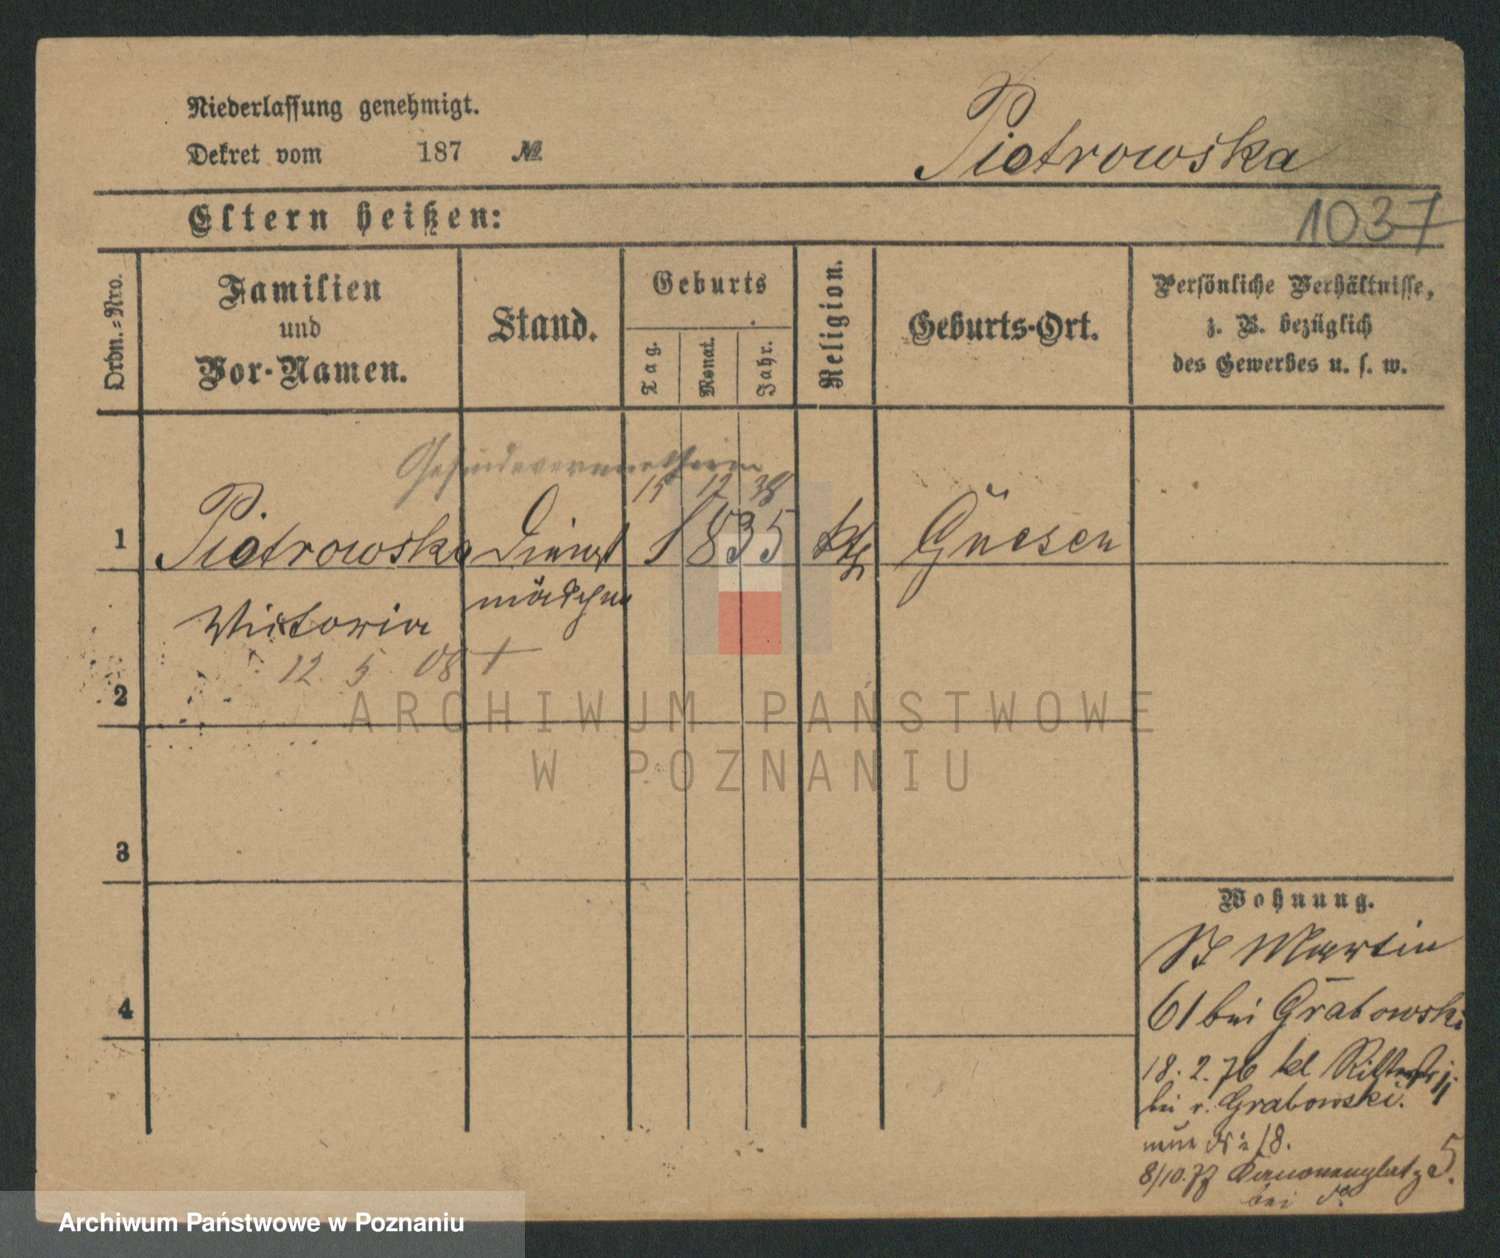 Niederlassung genehmigt.
Dekret vom 187 №
Piotrowska
Eltern heißen:
1037
Ordn.-Nro.
Familien
und
Vor-Namen.
Stand.
Geburts
Tag.
Monat.
Jahr.
Religion.
Geburts-Ort.
Persönliche Verhältnisse,
z. B. bezüglich
des Gewerbes u. s. w.
Gesindevermietherin
15 12 38
1 Piotrowska Dienst 1835 kth Gnesen
mädchen
Victoria
12. 5 08 †
2
3
4
Wohnung.
St Martin
61 bei Grabowski
18. 2. 76 kl Ritterstr
bei v. Grabowski.
18.
8/10.77 Kanonenplatz 5.
bei do
ARCHIWUM PAŃSTWOWE
W POZNANIU
Archiwum Państwowe w Poznaniu